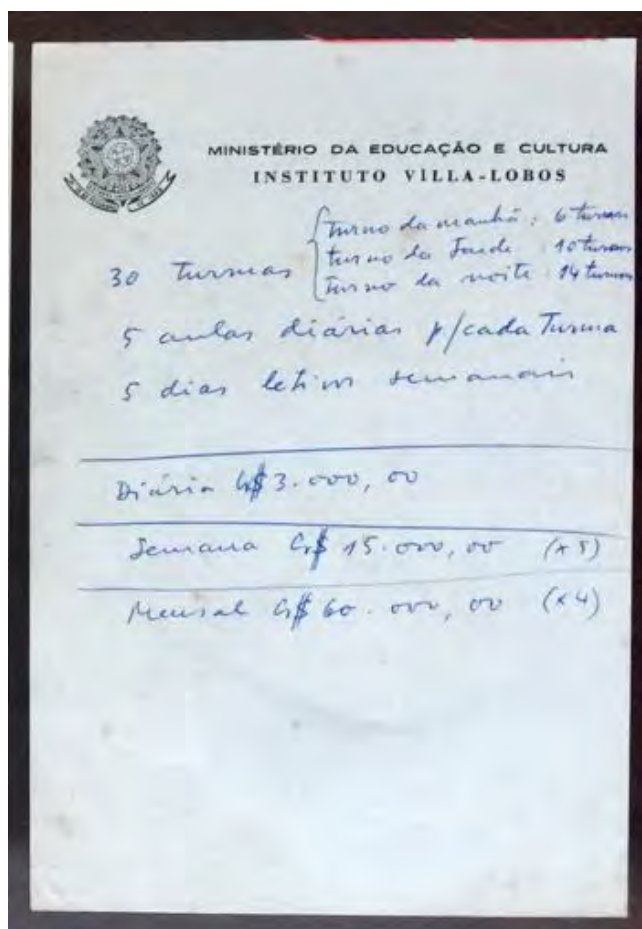 MINISTÉRIO DA EDUCAÇÃO E CULTURA
INSTITUTO VILLA-LOBOS
30 turmas
turno da manhã: 6 turmas
turno da Tarde: 10 turmas
turno da noite: 14 turmas
5 aulas diárias p/cada Turma
5 dias letivos semanais
Diária Cr$ 3.000,00
Semana Cr$ 15.000,00 (x5)
Mensal Cr$ 60.000,00 (x4)